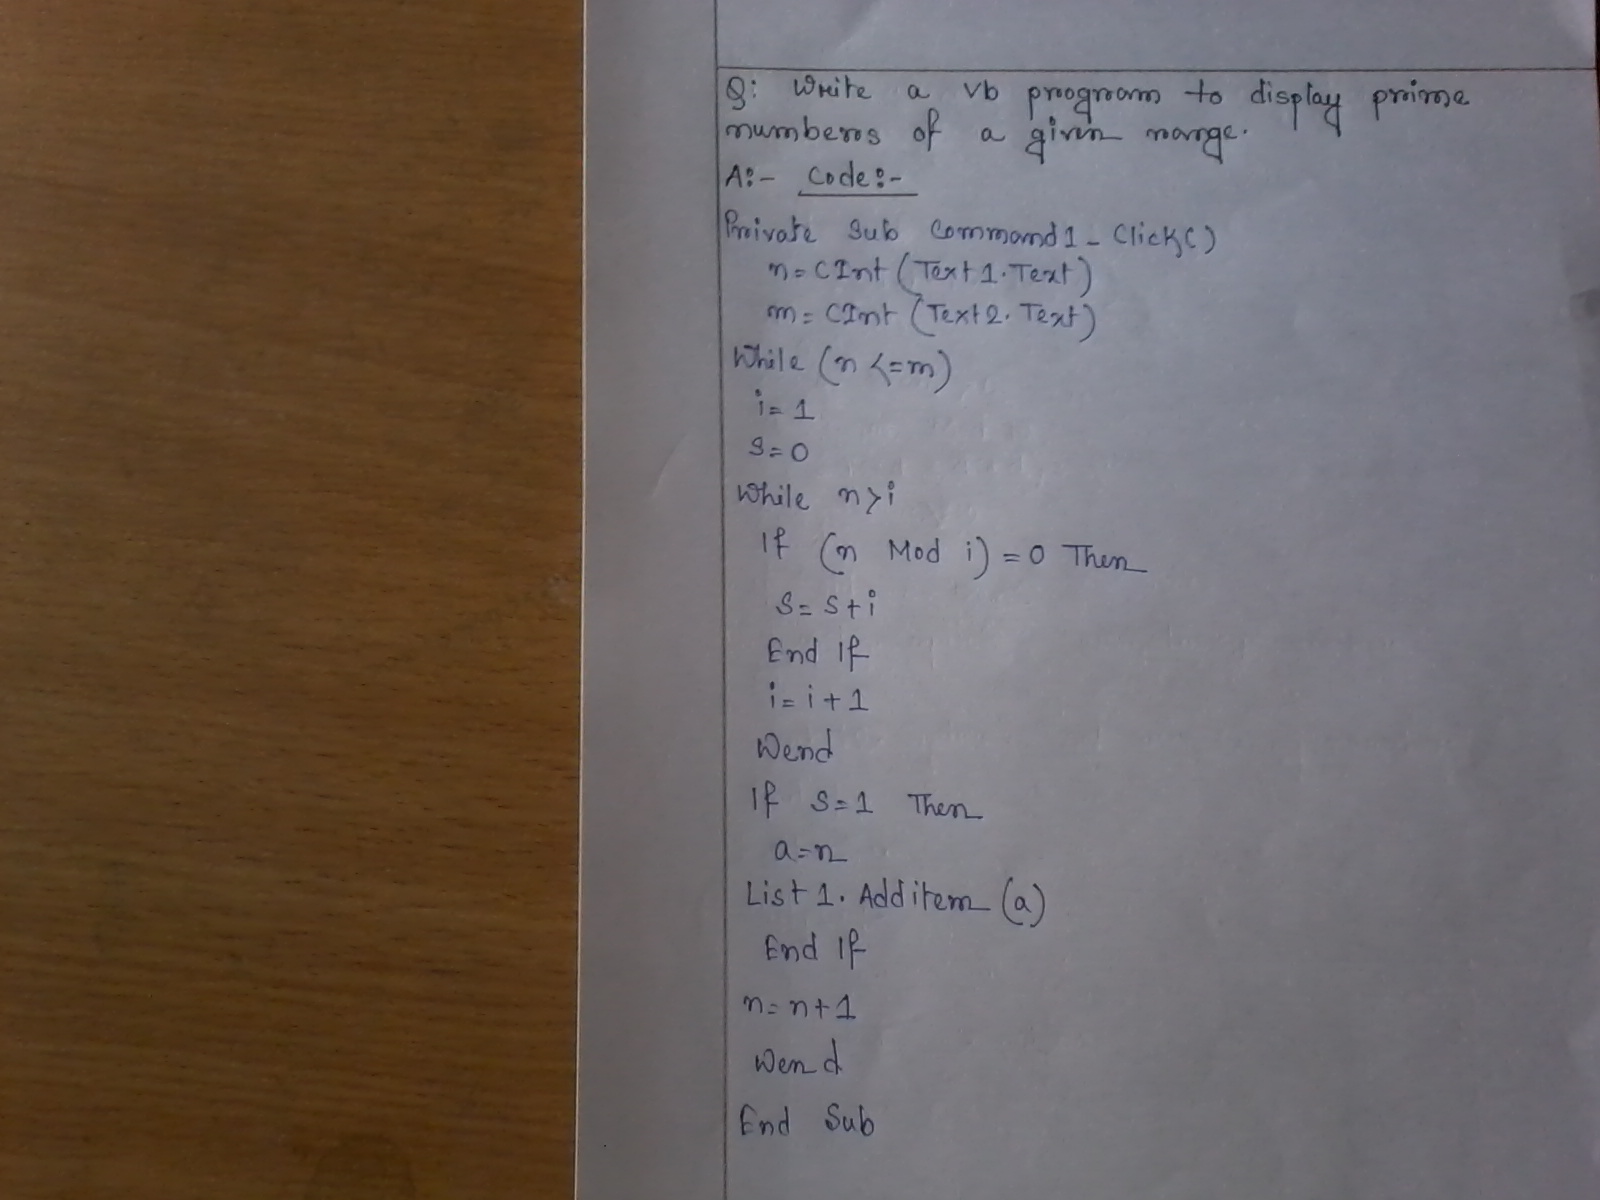 Q: Write a vb program to display prime
numbers of a given range.
A:- Code:-
Private Sub Command1_Click()
n=CInt (Text1.Text)
m=CInt (Text2.Text)
While (n <=m)
i=1
S=0
While n>i
If (n Mod i)=0 Then
S=S+i
End If
i=i+1
Wend
If S=1 Then
a=n
List1.Additem (a)
End If
n=n+1
Wend
End Sub